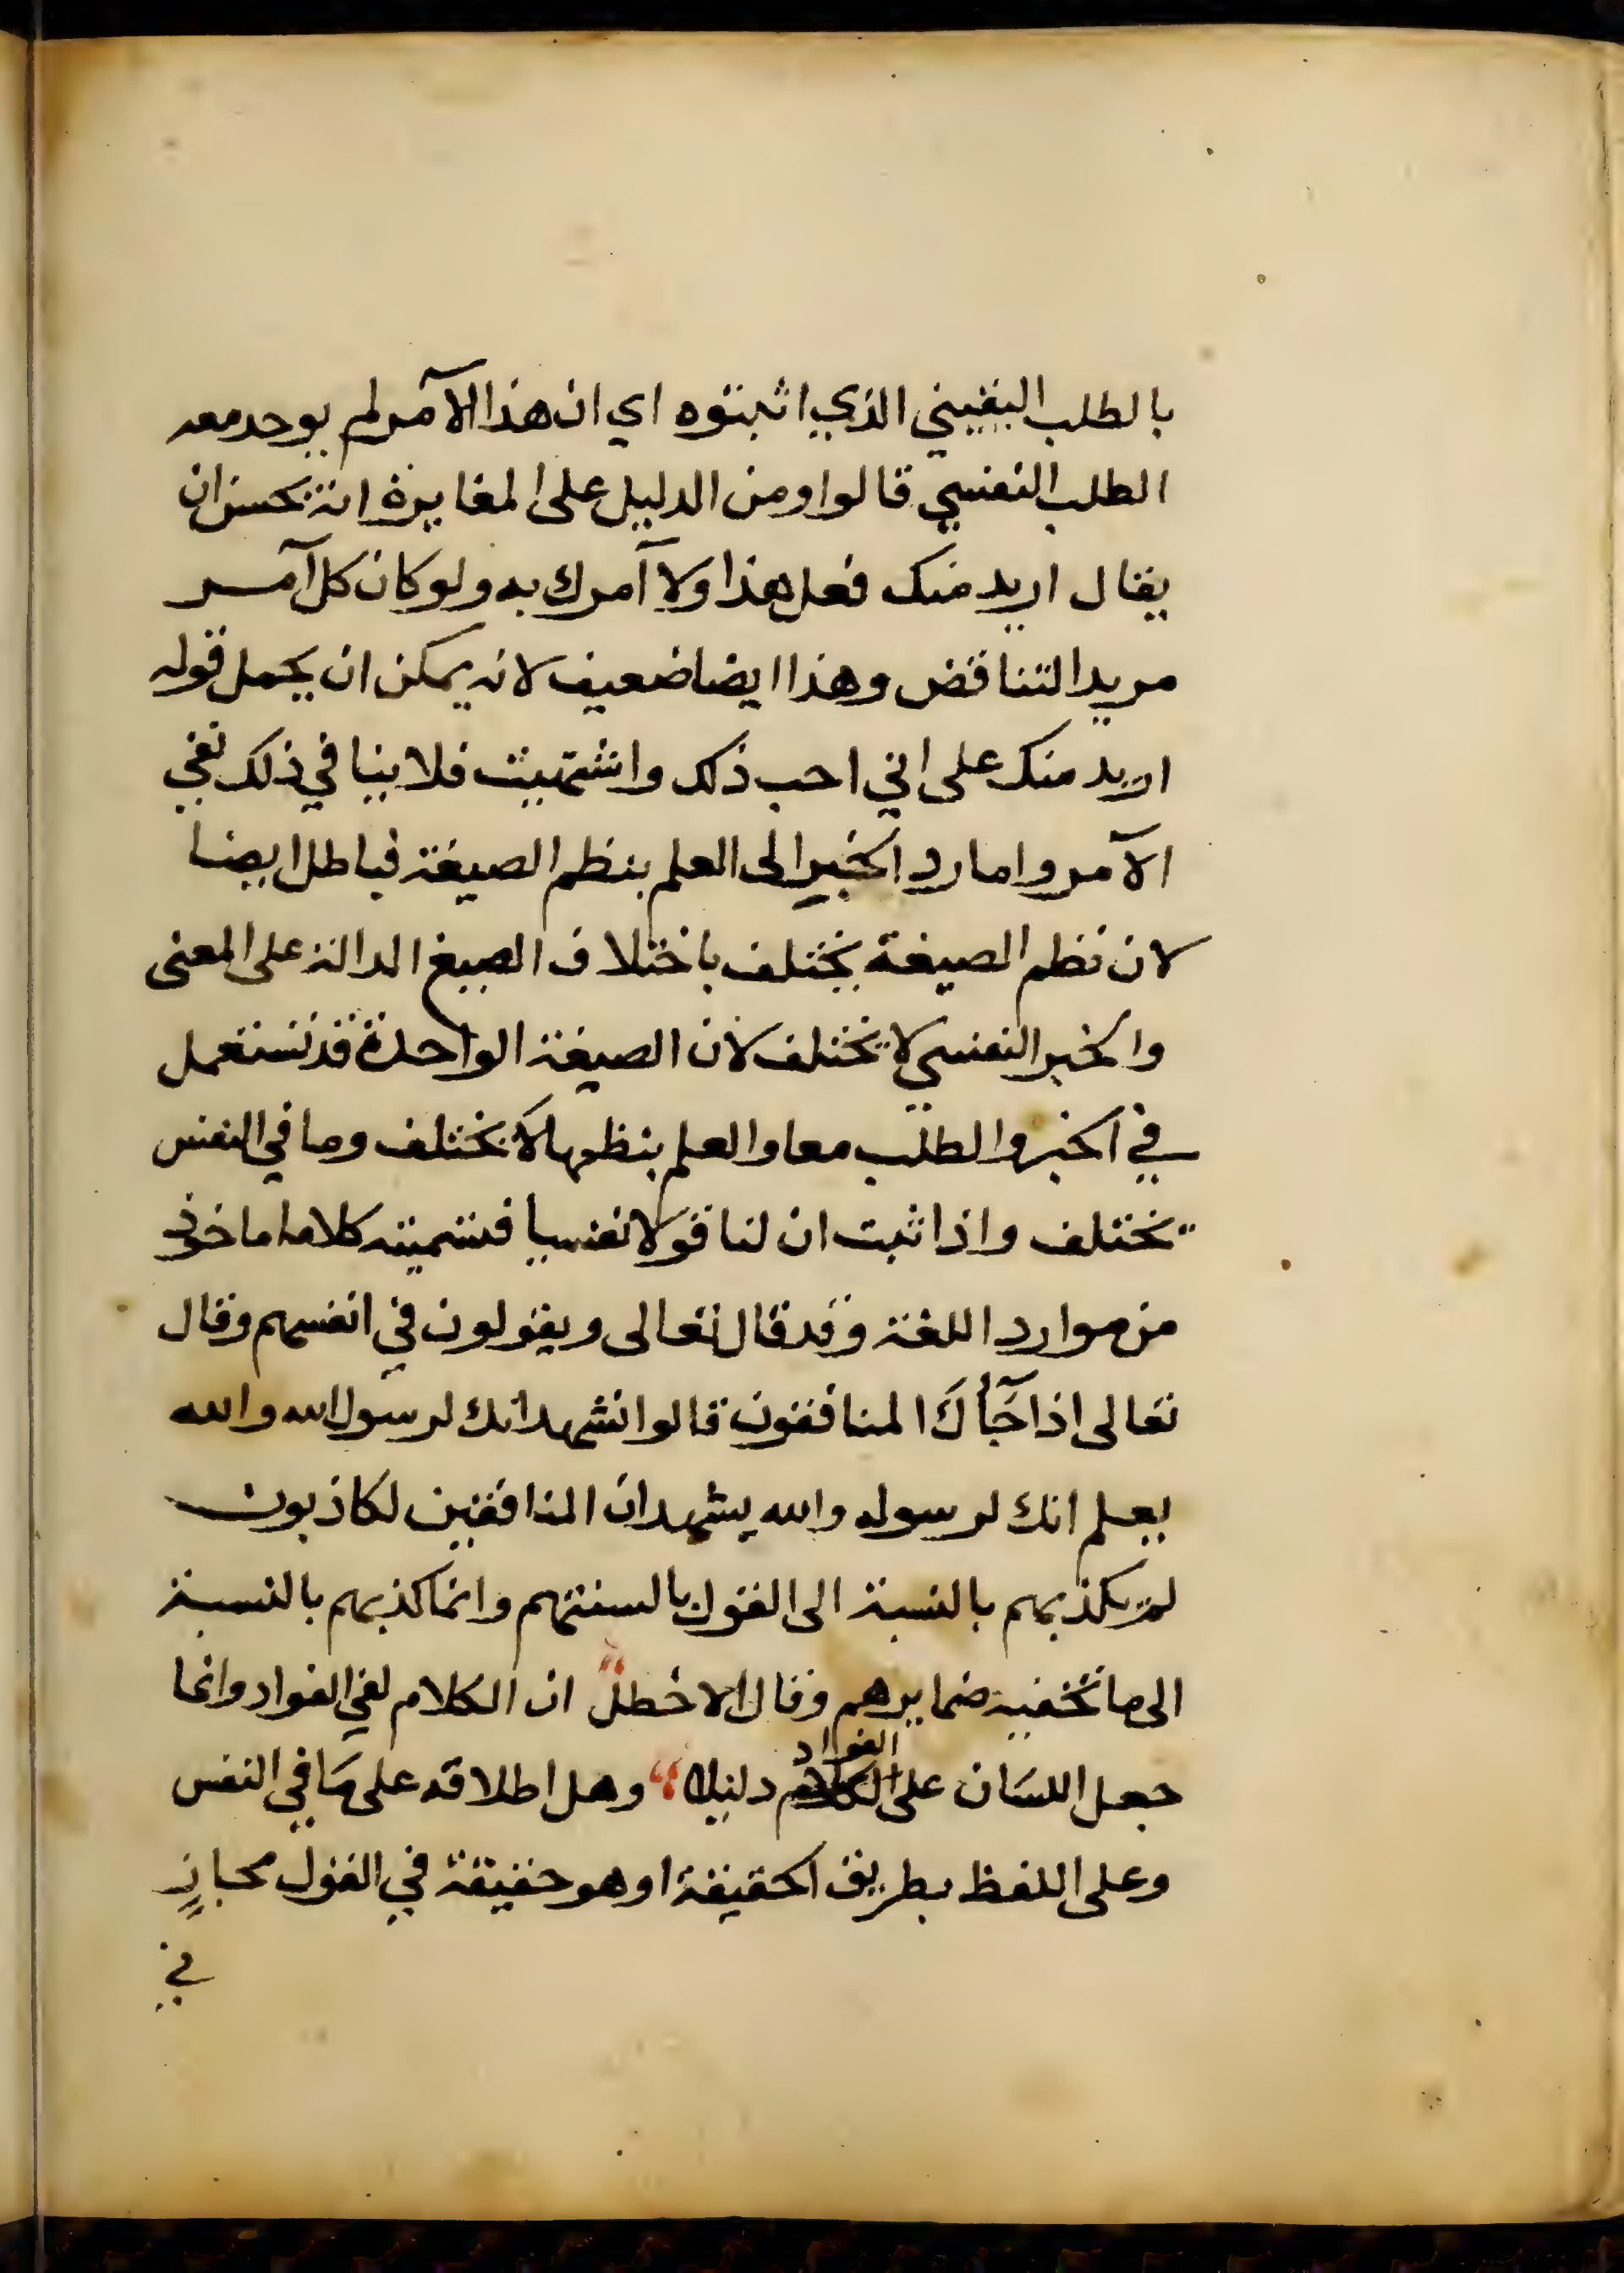 بالطلب اليقيني الذي اثبتوه اي ان هذا الآمر لم يوجد معه
الطلب النفسي قالوا ومن الدليل على المغايرة انه يحسن ان
يقال اريد منك فعل هذا ولا آمرك به ولو كان كل آمر
مريدا لتناقض وهذا ايضا ضعيف لانه يمكن ان يحمل قوله
اريد منك على اني احب ذلك واشتهيت فلا ينافي ذلك نفي
الآمر واما رد الخبر الى العلم بنظم الصيغة فباطل ايضا
لان نظم الصيغة يختلف باختلاف الصيغ الدالة على المعنى
والخبر النفسي لا يختلف لان الصيغة الواحدة قد تستعمل
في الخبر والطلب معا والعلم بنظمها لا يختلف وما في النفس
يختلف واذا ثبت ان لنا قولا نفسيا فتسميته كلاما ماخوذ
من موارد اللغة وقد قال تعالى ويقولون في انفسهم وقال
تعالى اذا جَآأكَ المنافقون قالوا نشهد انك لرسول الله والله
يعلم انك لرسوله والله يشهد ان المنافقين لكاذبون
لم يكذبهم بالنسبة الى القول بالسنتهم وانما كذبهم بالنسبة
الى ما تخفيه ضمايرهم وقال الاخطل ان الكلام لفي الفواد وانما
الفواد
جعل اللسَان على الكلام دليلا وهل اطلاقه على مَا في النفس
وعلى اللفظ بطريق الحقيقة او هو حقيقة في القول مجازٍ
في